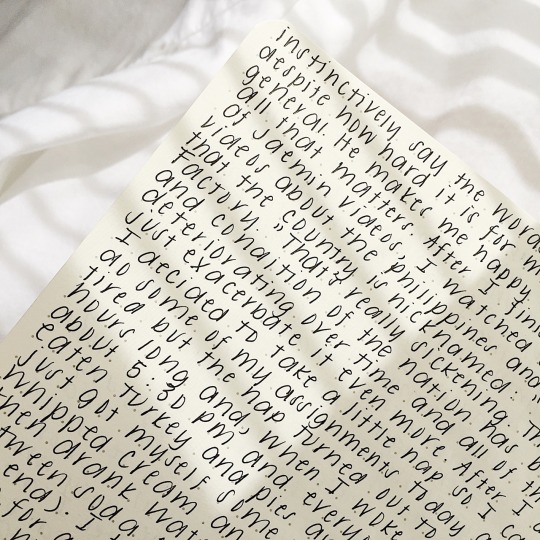 instinctively say the word
despite how hard it is for m
general. He makes me happy
all that matters. After I fini
of Jaemin videos, I watched
videos about the philippines and
that the country is nicknamed
Factory." That's really sickening. Th
and condition of the nation has b
deteriorating over time and all of th
just exacerbate it even more. After I
I decided to take a little nap so I ca
do some of my assignments today a
tired but the nap turned out to
hours long and, when I woke
about 5:30 pm and everyo
eaten turkey and pies a
just got myself some
whipped cream an
then drank wat
tween soda
end). I t
for a